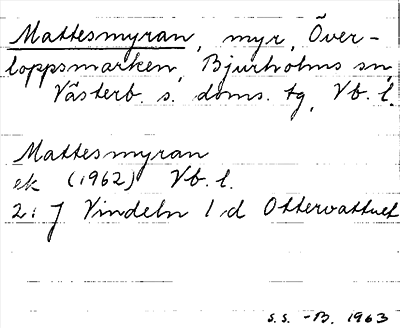 Mattesmyran, myr, Över-
loppsmarken, Bjurholms sn,
Västerb. s. doms. tg, Vb. l.
Mattesmyran
ek (1962) Vb. l.
2: J Vindeln l d Ottervattnet
s.s. -B. 1963